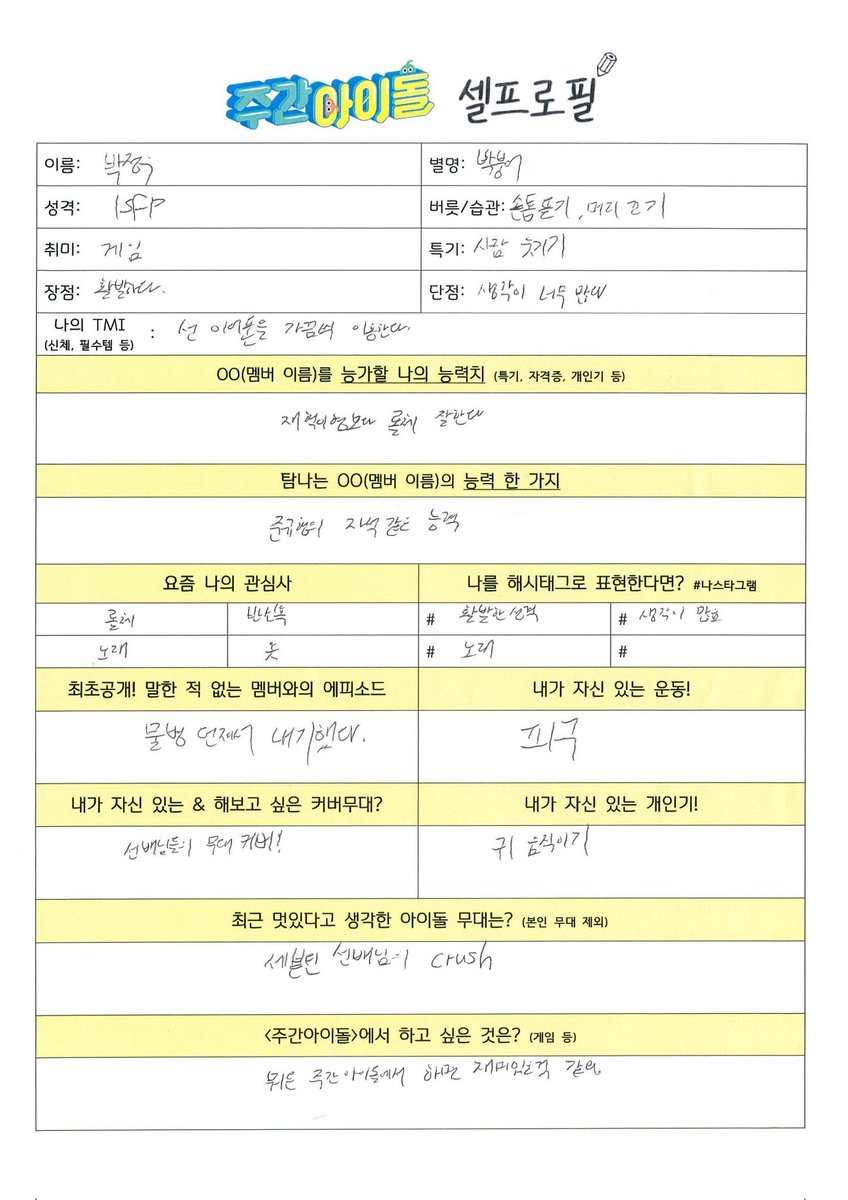 주간아이돌 셀프로필
이름: 박정우 별명: 박붕어
성격: ISFP 버릇/습관: 손톱 뜯기, 머리 꼬기
취미: 게임 특기: 사람 웃기기
장점: 활발하다. 단점: 생각이 너무 많다
나의 TMI : 선 이어폰을 가끔씩 이용한다.
(신체, 필수템 등)
OO(멤버 이름)를 능가할 나의 능력치 (특기, 자격증, 개인기 등)
재혁이형보다 롤체 잘한다
탐나는 OO(멤버 이름)의 능력 한 가지
준규형의 자석 같은 능력
요즘 나의 관심사 나를 해시태그로 표현한다면? #나스타그램
롤체 # 활발한 성격 # 생각이 많음
노래 옷 # 노래 #
최초공개! 말한 적 없는 멤버와의 에피소드 내가 자신 있는 운동!
물병 던져서 내기했다. 피구
내가 자신 있는 & 해보고 싶은 커버무대? 내가 자신 있는 개인기!
선배님들의 무대 커버! 귀 움직이기
최근 멋있다고 생각한 아이돌 무대는? (본인 무대 제외)
세븐틴 선배님의 Crush
<주간아이돌>에서 하고 싶은 것은? (게임 등)
뭐든 주간아이돌에서 하면 재미있을것 같아요